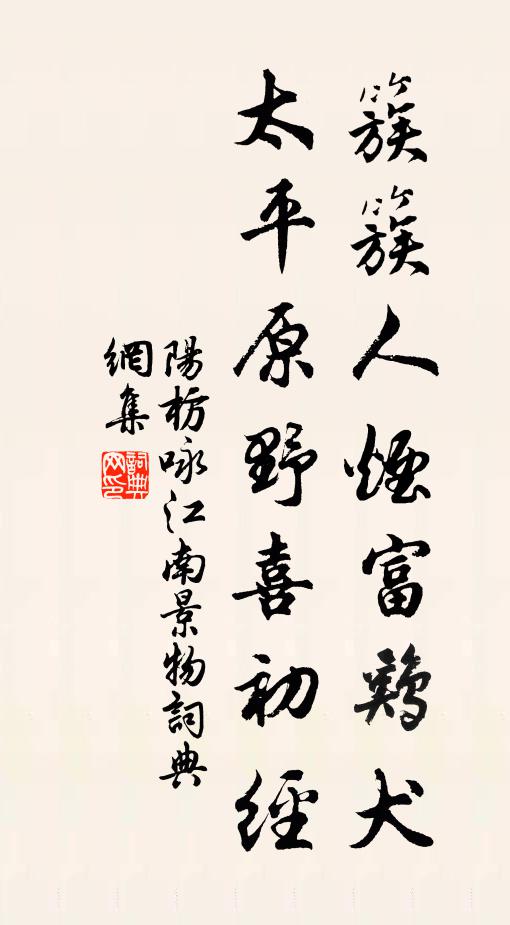 簇簇人煙富鷄犬
太平原野喜初經
陽枋咏江南景物詞典
網集
詞典網印